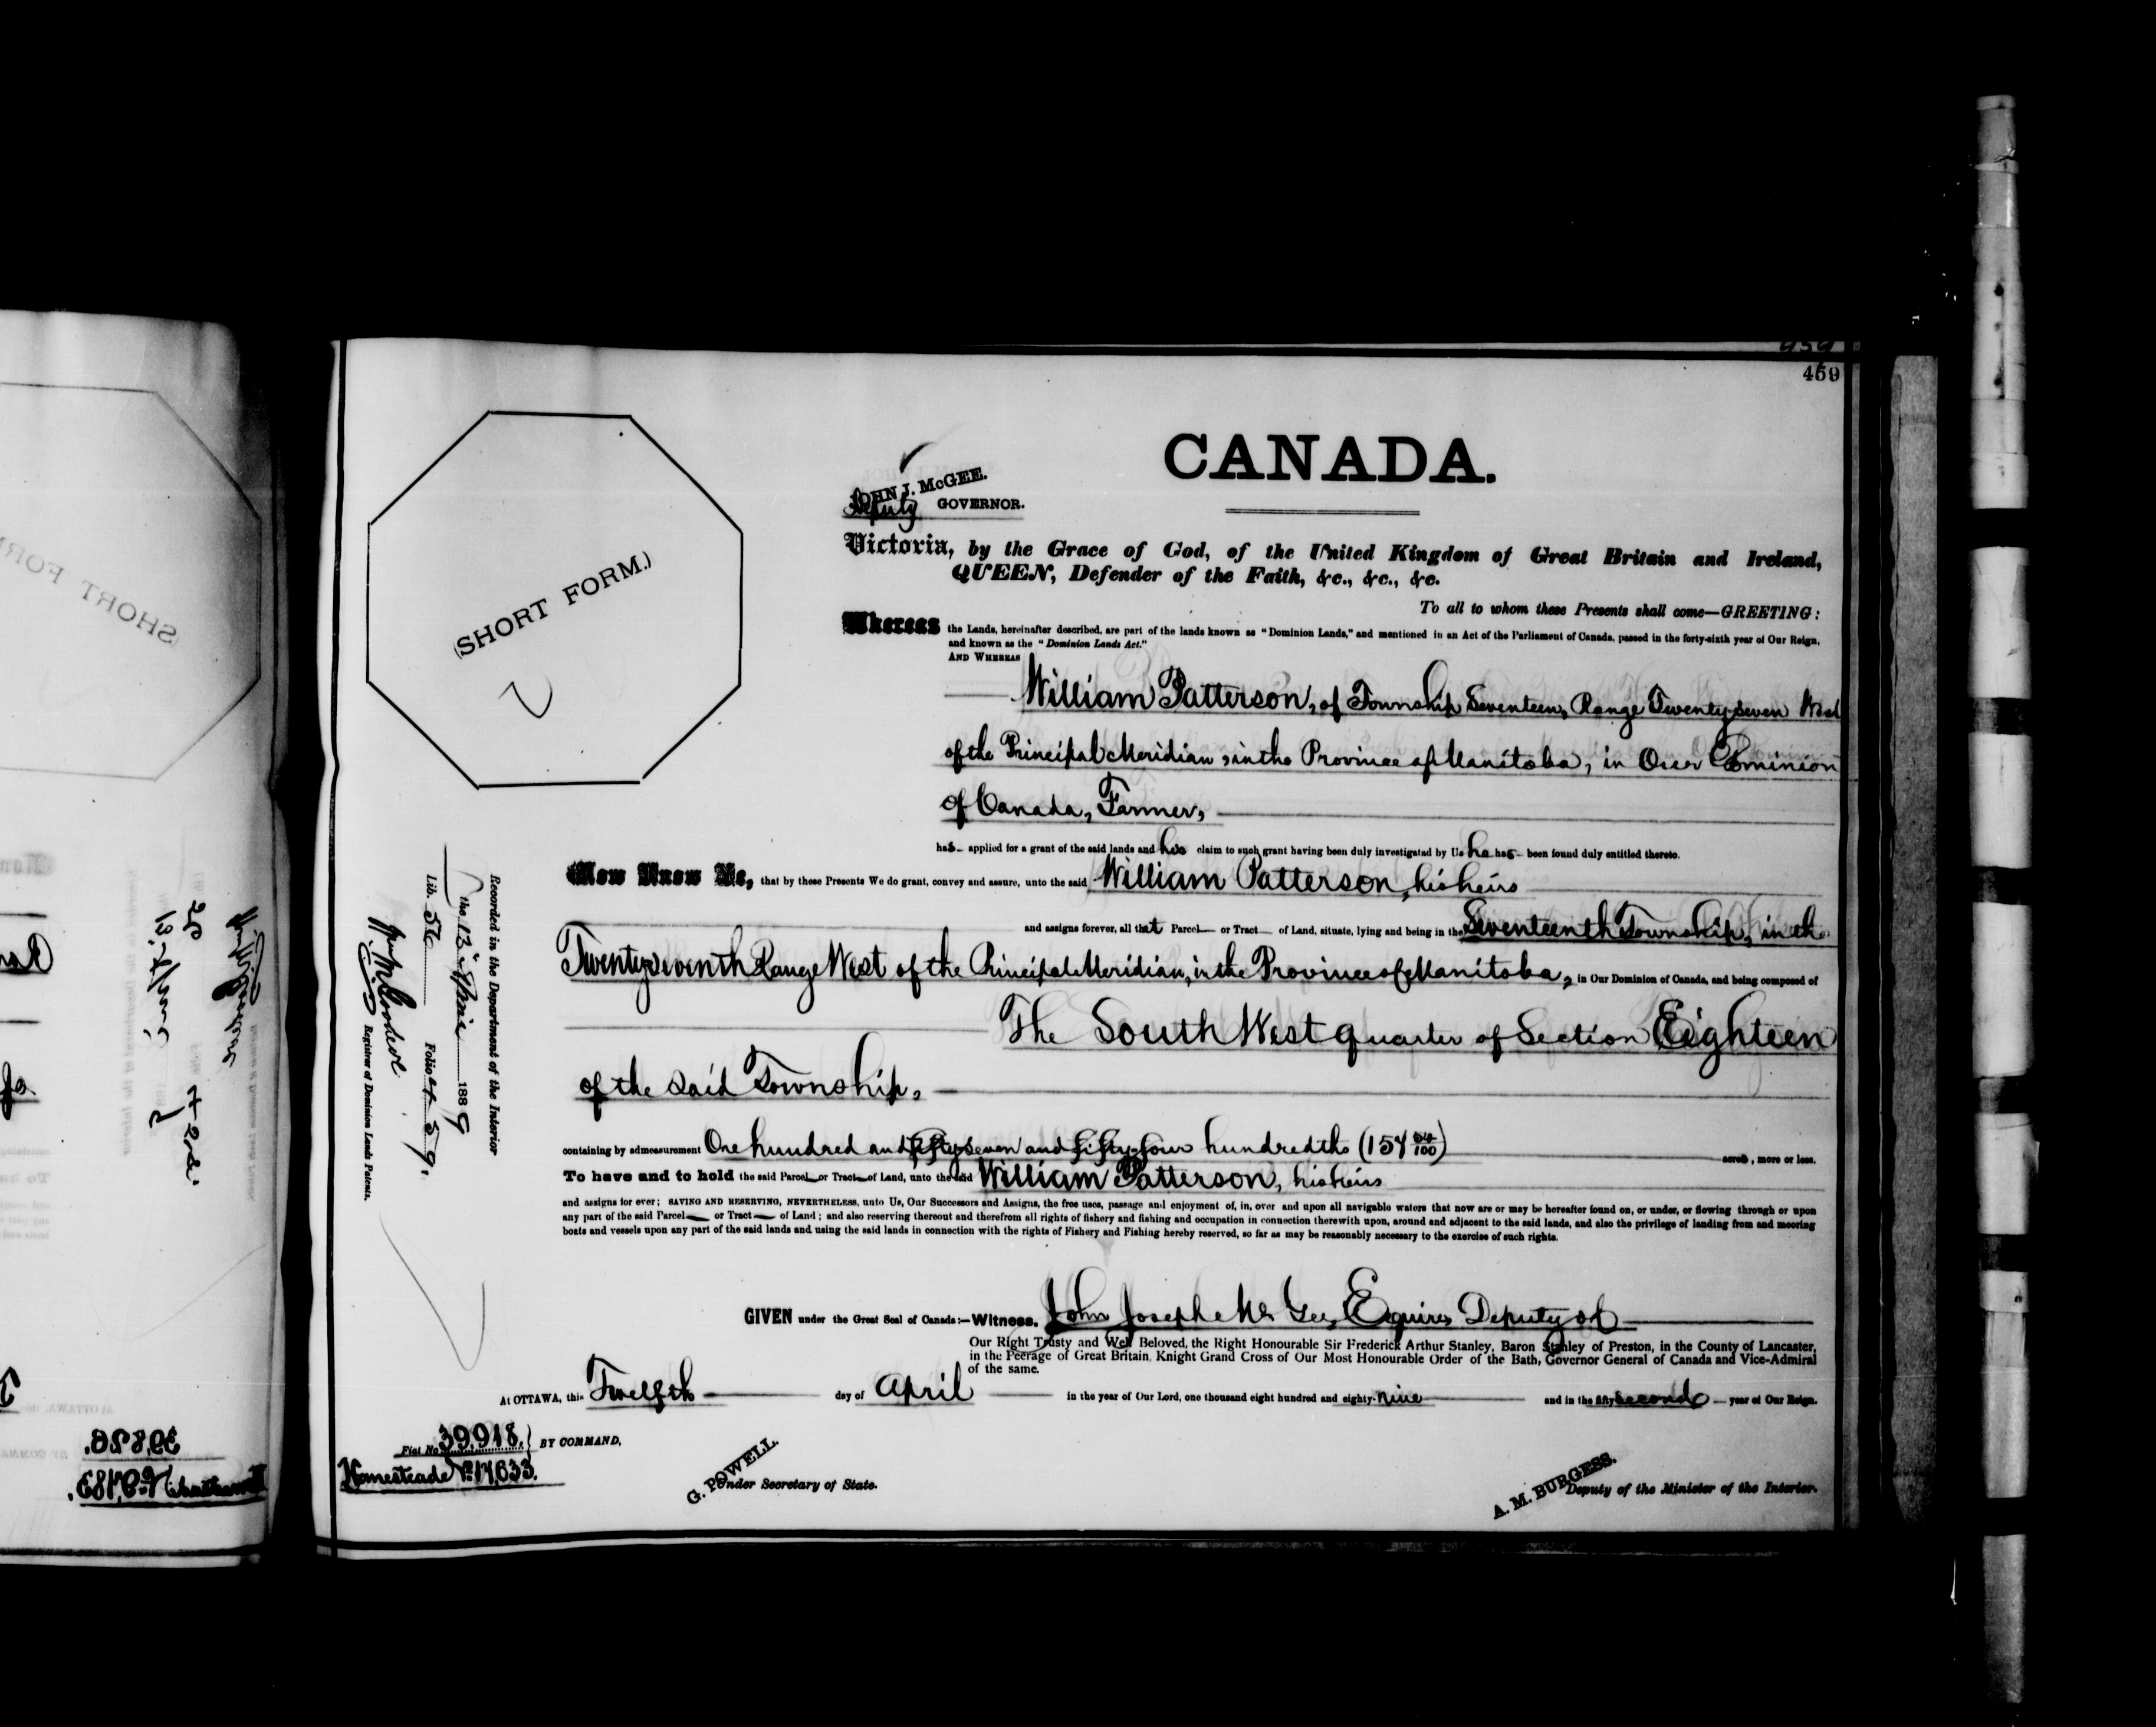 459
CANADA.
JOHN J. McGEE.
Deputy GOVERNOR.
(SHORT FORM.)
Victoria, by the Grace of God, of the United Kingdom of Great Britain and Ireland,
QUEEN, Defender of the Faith, &c., &c., &c.
To all to whom these Presents shall come—GREETING:
Whereas the Lands, hereinafter described, are part of the lands known as "Dominion Lands," and mentioned in an Act of the Parliament of Canada, passed in the forty-sixth year of Our Reign,
and known as the "Dominion Lands Act."
AND WHEREAS
William Patterson, of Township Seventeen, Range Twenty seven West
of the Principal Meridian, in the Province of Manitoba, in Our Dominion
of Canada, Farmer,
has applied for a grant of the said lands and his claim to such grant having been duly investigated by Us he has been found duly entitled thereto.
Now Know Ye, that by these Presents We do grant, convey and assure, unto the said William Patterson, his heirs
and assigns forever, all that Parcel or Tract of Land, situate, lying and being in the Seventeenth Township, in the
Twenty seventh Range West of the Principal Meridian, in the Province of Manitoba, in Our Dominion of Canada, and being composed of
The South West quarter of Section Eighteen
of the said Township,
containing by admeasurement One hundred and fifty seven and fifty-four hundredths (157 54/100) acres, more or less.
To have and to hold the said Parcel or Tract of Land, unto the said William Patterson, his heirs
and assigns for ever; SAVING AND RESERVING, NEVERTHELESS, unto Us, Our Successors and Assigns, the free uses, passage and enjoyment of, in, over and upon all navigable waters that now are or may be hereafter found on, or under, or flowing through or upon
any part of the said Parcel or Tract of Land; and also reserving thereout and therefrom all rights of fishery and fishing and occupation in connection therewith upon, around and adjacent to the said lands, and also the privilege of landing from and mooring
boats and vessels upon any part of the said lands and using the said lands in connection with the rights of Fishery and Fishing hereby reserved, so far as may be reasonably necessary to the exercise of such rights.
GIVEN under the Great Seal of Canada:—Witness, John Joseph McGee, Esquire, Deputy of
Our Right Trusty and Well Beloved, the Right Honourable Sir Frederick Arthur Stanley, Baron Stanley of Preston, in the County of Lancaster,
in the Peerage of Great Britain, Knight Grand Cross of Our Most Honourable Order of the Bath, Governor General of Canada and Vice-Admiral
of the same.
At OTTAWA, this Twelfth day of April in the year of Our Lord, one thousand eight hundred and eighty-nine and in the fifty second year of Our Reign.
Fiat No. 39,918. BY COMMAND,
Homestead No. 17,633.
G. POWELL.
Under Secretary of State.
A. M. BURGESS.
Deputy of the Minister of the Interior.
Recorded in the Department of the Interior
the 13th April 1889
Lib. 56 Folio 459.
Registrar of Dominion Lands Patents.